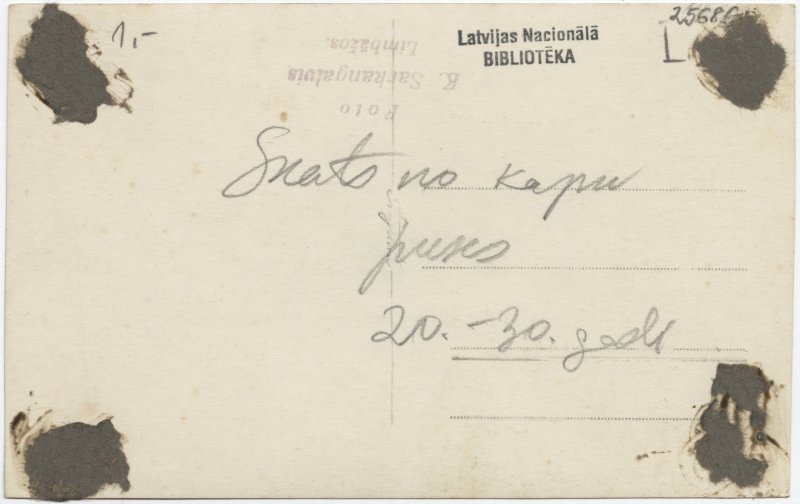 1,-
25686
Latvijas Nacionālā
BIBLIOTĒKA
L
Foto
K. Sarkangalvis
Limbažos.
Skats no kapu
puses
20.-30. gadi